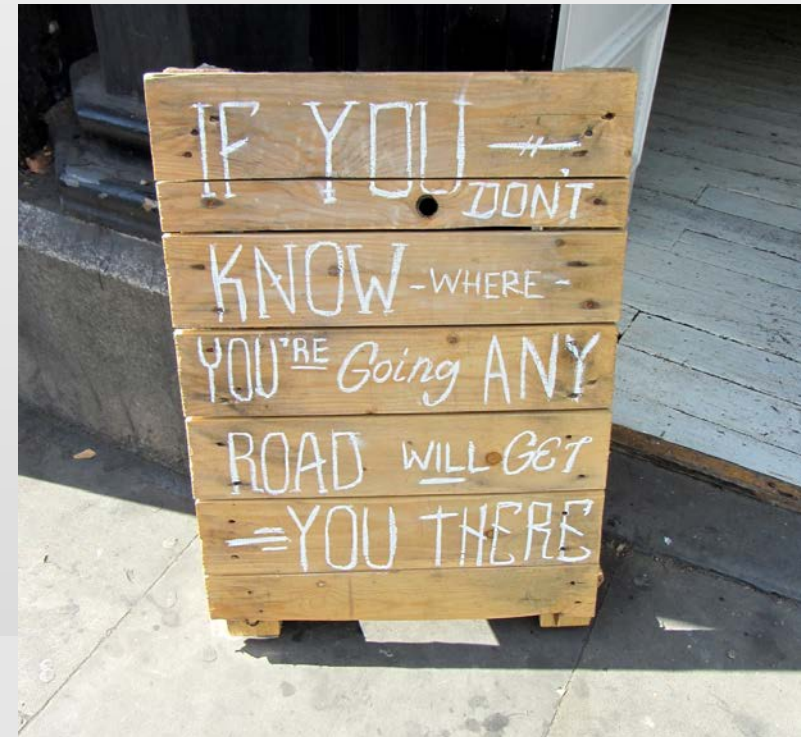 IF YOU
DON'T
KNOW - WHERE -
YOU'RE Going ANY
ROAD WILL GET
YOU THERE